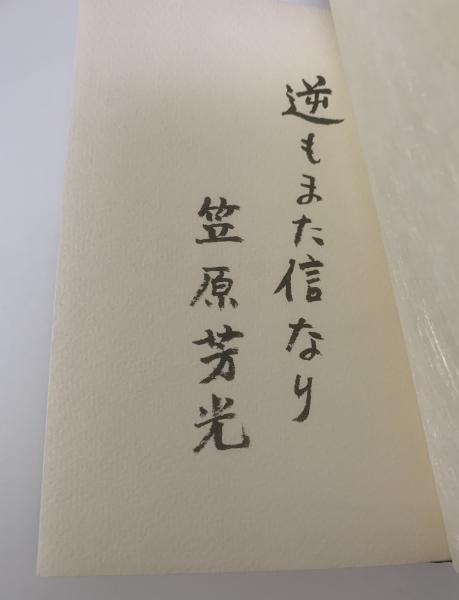 逆もまた信なり
笠原芳光